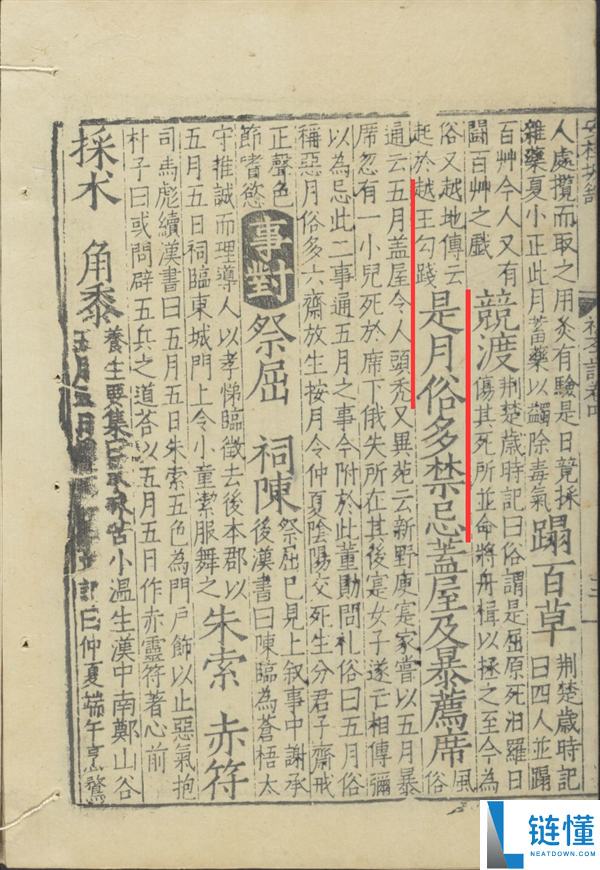 人處攬而取之用灸有驗是日競採
雜藥夏小正此月蓄藥以蠲除毒氣
蹋百草
荊楚歲時記
曰四人並蹋
百艸今人又有
鬬百艸之戲
競渡
荊楚歲時記曰俗謂是屈原死汨羅日
傷其死所並命將舟檝以拯之至今為
俗又越地傳云
起於越王勾踐
是月俗多禁忌蓋屋及暴薦席
風
俗
通云五月蓋屋令人頭禿又異苑云新野庾寔家嘗以五月暴
席忽有一小兒死於席下俄失所在其後寔女子遂亡相傳彌
以為忌此二事通五月之事今附於此董勛問礼俗曰五月俗
稱惡月俗多六齋放生按月令仲夏陰陽交死生分君子齋戒
正聲色
節嗜慾
事對
祭屈 祠陳
祭屈已見上叙事中謝承
後漢書曰陳臨為蒼梧太
守推誠而理導人以孝悌臨徵去後本郡以
五月五日祠臨東城門上令小童潔服舞之
朱索 赤符
司馬彪續漢書曰五月五日朱索五色為門戶飾以止惡氣抱
朴子曰或問辟五兵之道荅以五月五日作赤靈符著心前
採朮 角黍
養生要集曰朮味苦小温生漢中南鄭山谷
五月五日
記曰仲夏端午烹鶩
链懂
NEATDOWN.COM